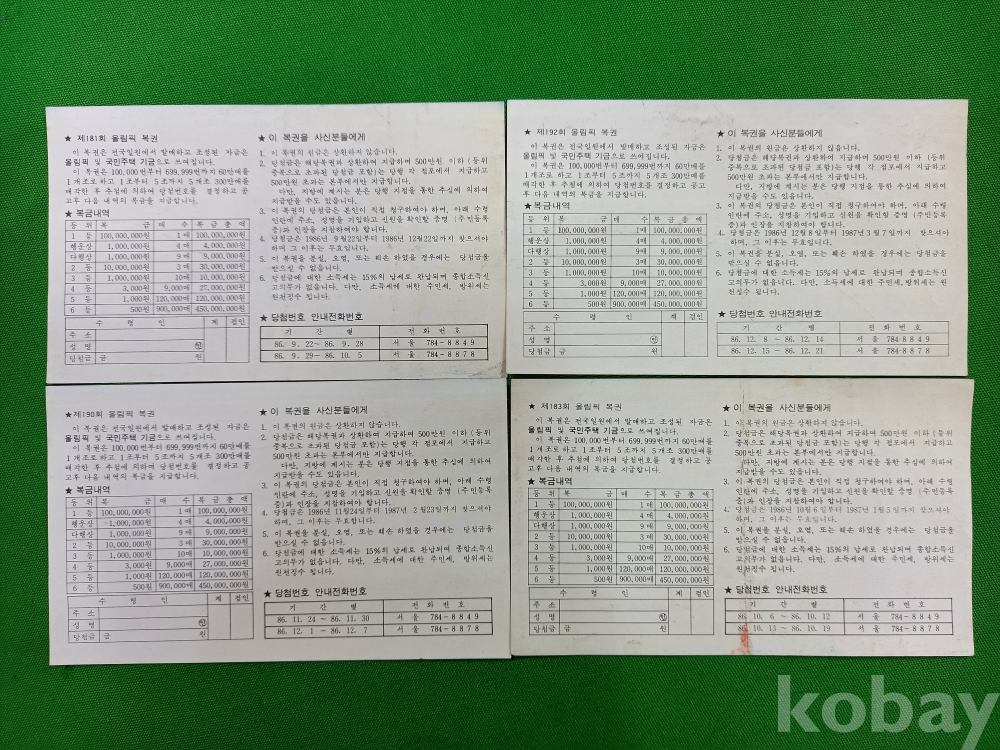 ★ 제181회 올림픽 복권
이 복권은 전국일원에서 발매하고 조성된 자금은
올림픽 및 국민주택 기금으로 쓰여집니다.
이 복권은 100,000번부터 699,999번까지 60만매를
1개조로 하고 1조부터 5조까지 5개조 300만매를
매각한 후 추첨에 의하여 당첨번호를 결정하고 공
고후 다음 내역의 복금을 지급합니다.
★ 복금내역
등 위 복 금 매 수 복 금 총 액
1 등 100,000,000원 1매 100,000,000원
행운상 1,000,000원 4매 4,000,000원
다행상 1,000,000원 9매 9,000,000원
2 등 10,000,000원 3매 30,000,000원
3 등 1,000,000원 10매 10,000,000원
4 등 3,000원 9,000매 27,000,000원
5 등 1,000원 120,000매 120,000,000원
6 등 500원 900,000매 450,000,000원
수 령 인 계 검인
주 소
성 명 ㊞
당첨금 금 원
★ 이 복권을 사신분들에게
1. 이 복권의 원금은 상환하지 않습니다.
2. 당첨금은 해당복권과 상환하여 지급하며 500만원 이하 (동위
중복으로 초과된 당첨금 포함)는 당행 각 점포에서 지급하고
500만원 초과는 본부에서만 지급합니다.
다만, 지방에 계시는 분은 당행 지점을 통한 추심에 의하여
지급받을 수도 있습니다.
3. 이 복권의 당첨금은 본인이 직접 청구하여야 하며, 아래 수령
인란에 주소, 성명을 기입하고 신원을 확인할 증명 (주민등록
증)과 인장을 지참하여야 합니다.
4. 당첨금은 1986년 9월22일부터 1986년 12월22일까지 찾으셔야
하며, 그 이후는 무효입니다.
5. 이 복권을 분실, 오염, 또는 훼손 하였을 경우에는 당첨금을
받으실 수 없읍니다.
6. 당첨금에 대한 소득세는 15%의 납세로 완납되며 종합소득신
고의무가 없읍니다. 다만, 소득세에 대한 주민세, 방위세는
원천징수 됩니다.
★ 당첨번호 안내전화번호
기 간 별 전 화 번 호
86. 9. 22~ 86. 9. 28 서 울 784-8849
86. 9. 29~ 86. 10. 5 서 울 784-8878
★ 제192회 올림픽 복권
이 복권은 전국일원에서 발매하고 조성된 자금은
올림픽 및 국민주택 기금으로 쓰여집니다.
이 복권은 100,000번부터 699,999번까지 60만매를
1개조로 하고 1조부터 5조까지 5개조 300만매를
매각한 후 추첨에 의하여 당첨번호를 결정하고 공고
후 다음 내역의 복금을 지급합니다.
★ 복금내역
등 위 복 금 매 수 복 금 총 액
1 등 100,000,000원 1매 100,000,000원
행운상 1,000,000원 4매 4,000,000원
다행상 1,000,000원 9매 9,000,000원
2 등 10,000,000원 3매 30,000,000원
3 등 1,000,000원 10매 10,000,000원
4 등 3,000원 9,000매 27,000,000원
5 등 1,000원 120,000매 120,000,000원
6 등 500원 900,000매 450,000,000원
수 령 인 계 검인
주 소
성 명 ㊞
당첨금 금 원
★ 이 복권을 사신분들에게
1. 이 복권의 원금은 상환하지 않습니다.
2. 당첨금은 해당복권과 상환하여 지급하며 500만원 이하 (등위
중복으로 초과된 당첨금 포함)는 당행 각 점포에서 지급하고
500만원 초과는 본부에서만 지급합니다.
다만, 지방에 계시는 분은 당행 지점을 통한 추심에 의하여
지급받을 수도 있습니다.
3. 이 복권의 당첨금은 본인이 직접 청구하여야 하며, 아래 수령
인란에 주소, 성명을 기입하고 신원을 확인할 증명 (주민등록
증)과 인장을 지참하여야 합니다.
4. 당첨금은 1986년 12월8일부터 1987년 3월7일까지 찾으셔야
하며, 그 이후는 무효입니다.
5. 이 복권을 분실, 오염, 또는 훼손 하였을 경우에는 당첨금을
받으실 수 없읍니다.
6. 당첨금에 대한 소득세는 15%의 납세로 완납되며 종합소득신
고의무가 없읍니다. 다만, 소득세에 대한 주민세, 방위세는 원
천징수 됩니다.
★ 당첨번호 안내전화번호
기 간 별 전 화 번 호
86. 12. 8 ~ 86. 12. 14 서 울 784-8849
86. 12. 15 ~ 86. 12. 21 서 울 784-8878
★ 제190회 올림픽 복권
이 복권은 전국일원에서 발매하고 조성된 자금은
올림픽 및 국민주택 기금으로 쓰여집니다.
이 복권은 100,000번부터 699,999번까지 60만매를
1개조로 하고 1조부터 5조까지 5개조 300만매를
매각한 후 추첨에 의하여 당첨번호를 결정하고 공
고후 다음 내역의 복금을 지급합니다.
★ 복금내역
등 위 복 금 매 수 복 금 총 액
1 등 100,000,000원 1매 100,000,000원
행운상 1,000,000원 4매 4,000,000원
다행상 1,000,000원 9매 9,000,000원
2 등 10,000,000원 3매 30,000,000원
3 등 1,000,000원 10매 10,000,000원
4 등 3,000원 9,000매 27,000,000원
5 등 1,000원 120,000매 120,000,000원
6 등 500원 900,000매 450,000,000원
수 령 인 계 검인
주 소
성 명 ㊞
당첨금 금 원
★ 이 복권을 사신분들에게
1. 이 복권의 원금은 상환하지 않습니다.
2. 당첨금은 해당복권과 상환하여 지급하며 500만원 이하 (등위
중복으로 초과된 당첨금 포함)는 당행 각 점포에서 지급하고
500만원 초과는 본부에서만 지급합니다.
다만, 지방에 계시는 분은 당행 지점을 통한 추심에 의하여
지급받을 수도 있습니다.
3. 이 복권의 당첨금은 본인이 직접 청구하여야 하며, 아래 수령
인란에 주소, 성명을 기입하고 신원을 확인할 증명 (주민등록
증)과 인장을 지참하여야 합니다.
4. 당첨금은 1986년 11월24일부터 1987년 2월23일까지 찾으셔야
하며, 그 이후는 무효입니다.
5. 이 복권을 분실, 오염, 또는 훼손 하였을 경우에는 당첨금을
받으실 수 없읍니다.
6. 당첨금에 대한 소득세는 15%의 납세로 완납되며 종합소득신
고의무가 없읍니다. 다만, 소득세에 대한 주민세, 방위세는
원천징수 됩니다.
★ 당첨번호 안내전화번호
기 간 별 전 화 번 호
86. 11. 24 ~ 86. 11. 30 서 울 784-8849
86. 12. 1 ~ 86. 12. 7 서 울 784-8878
★ 제183회 올림픽 복권
이 복권은 전국일원에서 발매하고 조성된 자금은
올림픽 및 국민주택 기금으로 쓰여집니다.
이 복권은 100,000번부터 699,999번까지 60만매를
1개조로 하고 1조부터 5조까지 5개조 300만매를
매각한 후 추첨에 의하여 당첨번호를 결정하고 공
고후 다음 내역의 복금을 지급합니다.
★ 복금내역
등 위 복 금 매 수 복 금 총 액
1 등 100,000,000원 1매 100,000,000원
행운상 1,000,000원 4매 4,000,000원
다행상 1,000,000원 9매 9,000,000원
2 등 10,000,000원 3매 30,000,000원
3 등 1,000,000원 10매 10,000,000원
4 등 3,000원 9,000매 27,000,000원
5 등 1,000원 120,000매 120,000,000원
6 등 500원 900,000매 450,000,000원
수 령 인 계 검인
주 소
성 명 ㊞
당첨금 금 원
★ 이 복권을 사신분들에게
1. 이 복권의 원금은 상환하지 않습니다.
2. 당첨금은 해당복권과 상환하여 지급하며 500만원 이하 (등위
중복으로 초과된 당첨금 포함)는 당행 각 점포에서 지급하고
500만원 초과는 본부에서만 지급합니다.
다만, 지방에 계시는 분은 당행 지점을 통한 추심에 의하여
지급받을 수도 있습니다.
3. 이 복권의 당첨금은 본인이 직접 청구하여야 하며, 아래 수령
인란에 주소, 성명을 기입하고 신원을 확인할 증명 (주민등록
증)과 인장을 지참하여야 합니다.
4. 당첨금은 1986년 10월6일부터 1987년 1월5일까지 찾으셔야
하며, 그 이후는 무효입니다.
5. 이 복권을 분실, 오염, 또는 훼손 하였을 경우에는 당첨금을
받으실 수 없읍니다.
6. 당첨금에 대한 소득세는 15%의 납세로 완납되며 종합소득신
고의무가 없읍니다. 다만, 소득세에 대한 주민세, 방위세는
원천징수 됩니다.
★ 당첨번호 안내전화번호
기 간 별 전 화 번 호
86. 10. 6 ~ 86. 10. 12 서 울 784-8849
86. 10. 13 ~ 86. 10. 19 서 울 784-8878
kobay